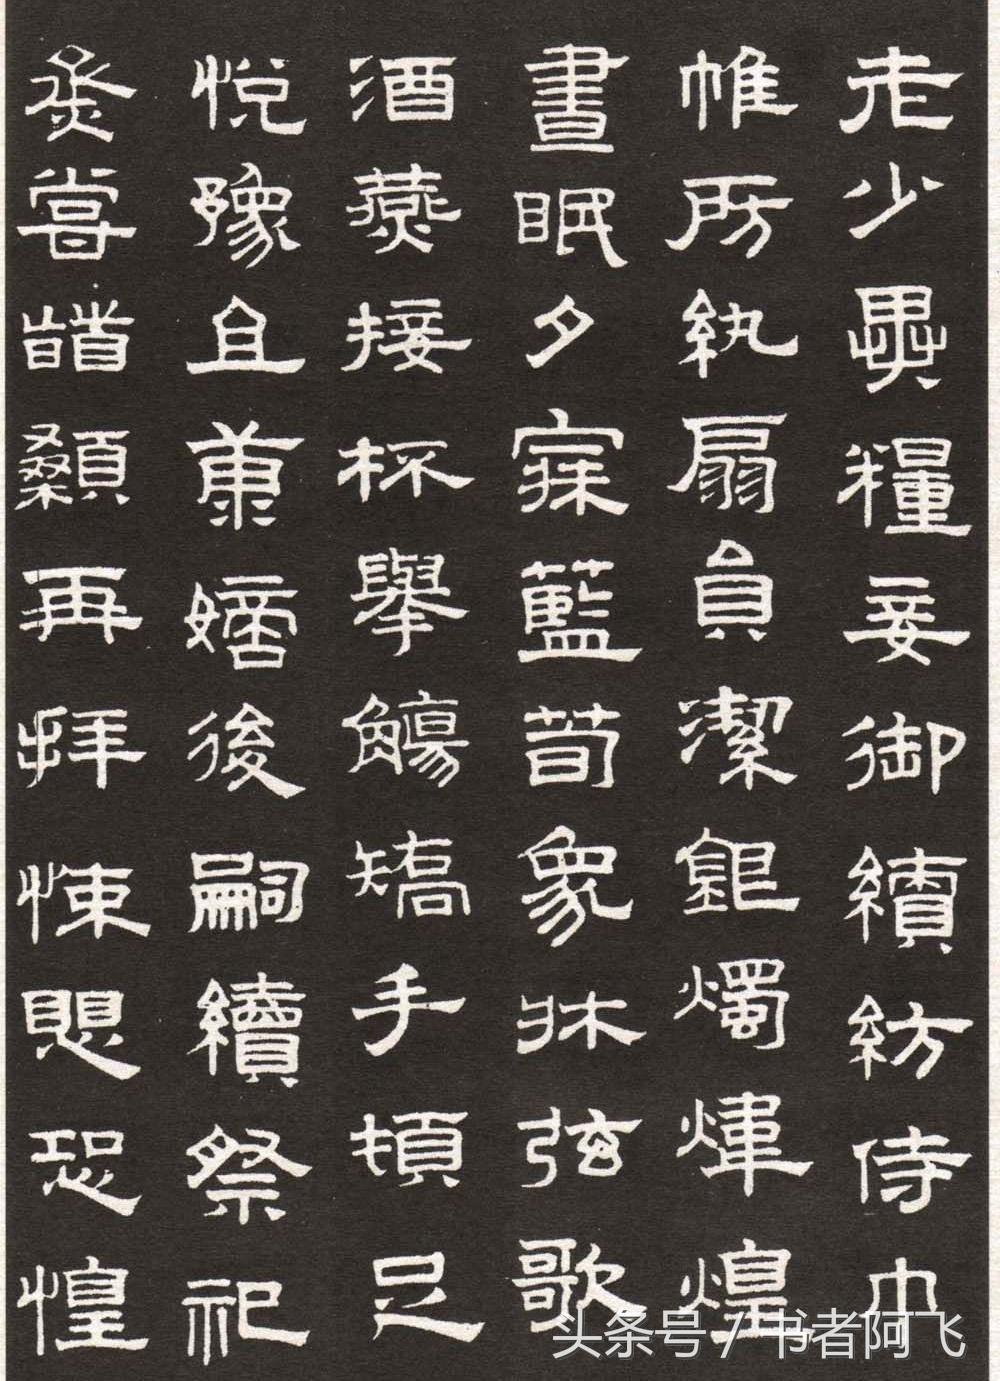 老少異糧妾御續紡侍巾
帷房紈扇員潔銀燭煒煌
晝眠夕寐藍荀象牀弦歌
酒燕接杯舉觴矯手頓足
悅豫且康嫡後嗣續祭祀
烝嘗䭫顙再拜悚懼恐惶
头条号 / 书者阿飞